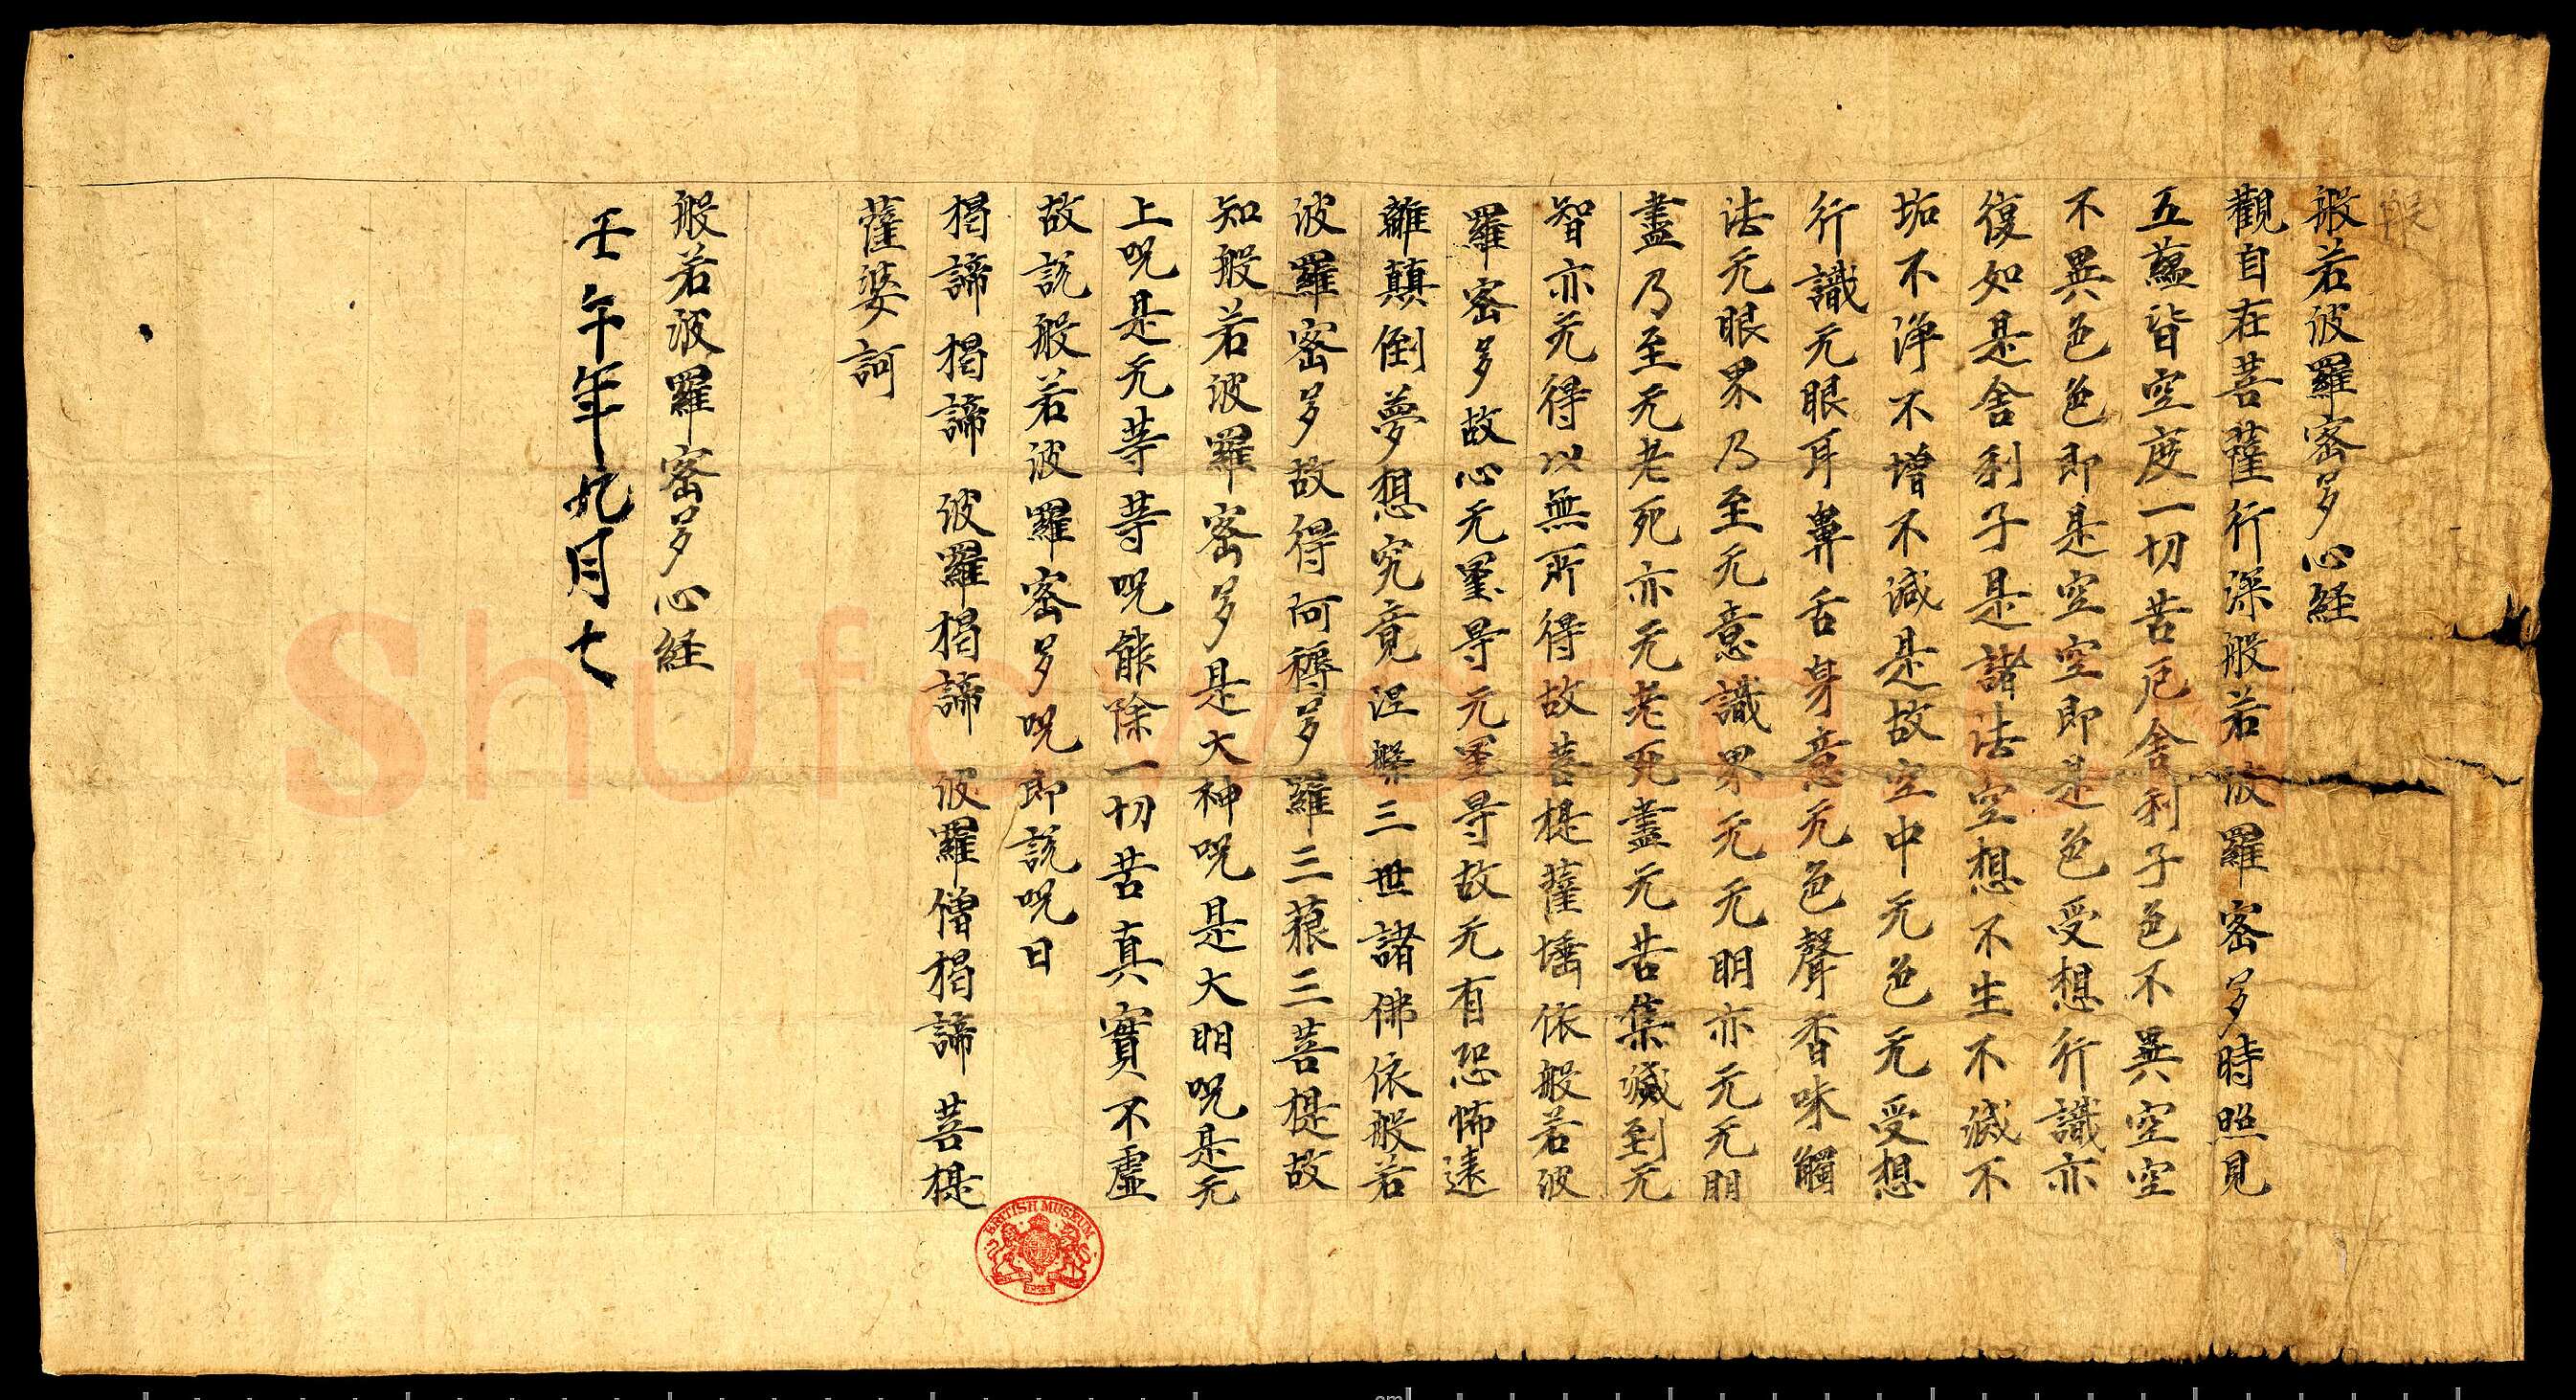 般若波羅蜜多心経
觀自在菩薩行深般若波羅蜜多時照見
五蘊皆空度一切苦厄舍利子色不異空空
不異色色即是空空即是色受想行識亦
復如是舍利子是諸法空想不生不滅不
垢不淨不增不減是故空中无色无受想
行識无眼耳鼻舌身意无色聲香味觸
法无眼界乃至无意識界无无明亦无无明
盡乃至无老死亦无老死盡无苦集滅到无
智亦无得以無所得故菩提薩埵依般若波
羅蜜多故心无罣导无罣导故无有恐怖遠
離顛倒夢想究竟涅槃三世諸佛依般若
波羅蜜多故得阿耨多羅三藐三菩提故
知般若波羅蜜多是大神呪是大明呪是无
上呪是无等等呪能除一切苦真實不虛
故說般若波羅蜜多呪即說呪曰
揭諦揭諦 波羅揭諦 波羅僧揭諦 菩提
薩婆訶
般若波羅蜜多心経
壬午年九月七
BRITISH MUSEUM
Shufawang
cm